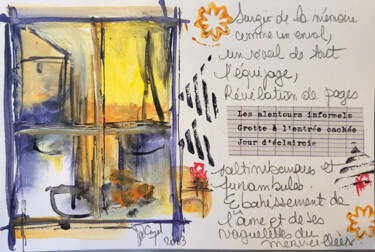 Surgir de la mémoire
comme un envol,
un royal de tout
l'équipage,
Révélation de pages
Les alentours informels
Grotte à l'entrée cachée
Jour d'éclaircie
saltimbanques et
funambule.
Ebahissement de
l'âme et de ses
vaguelettes du
merveilleux
2023